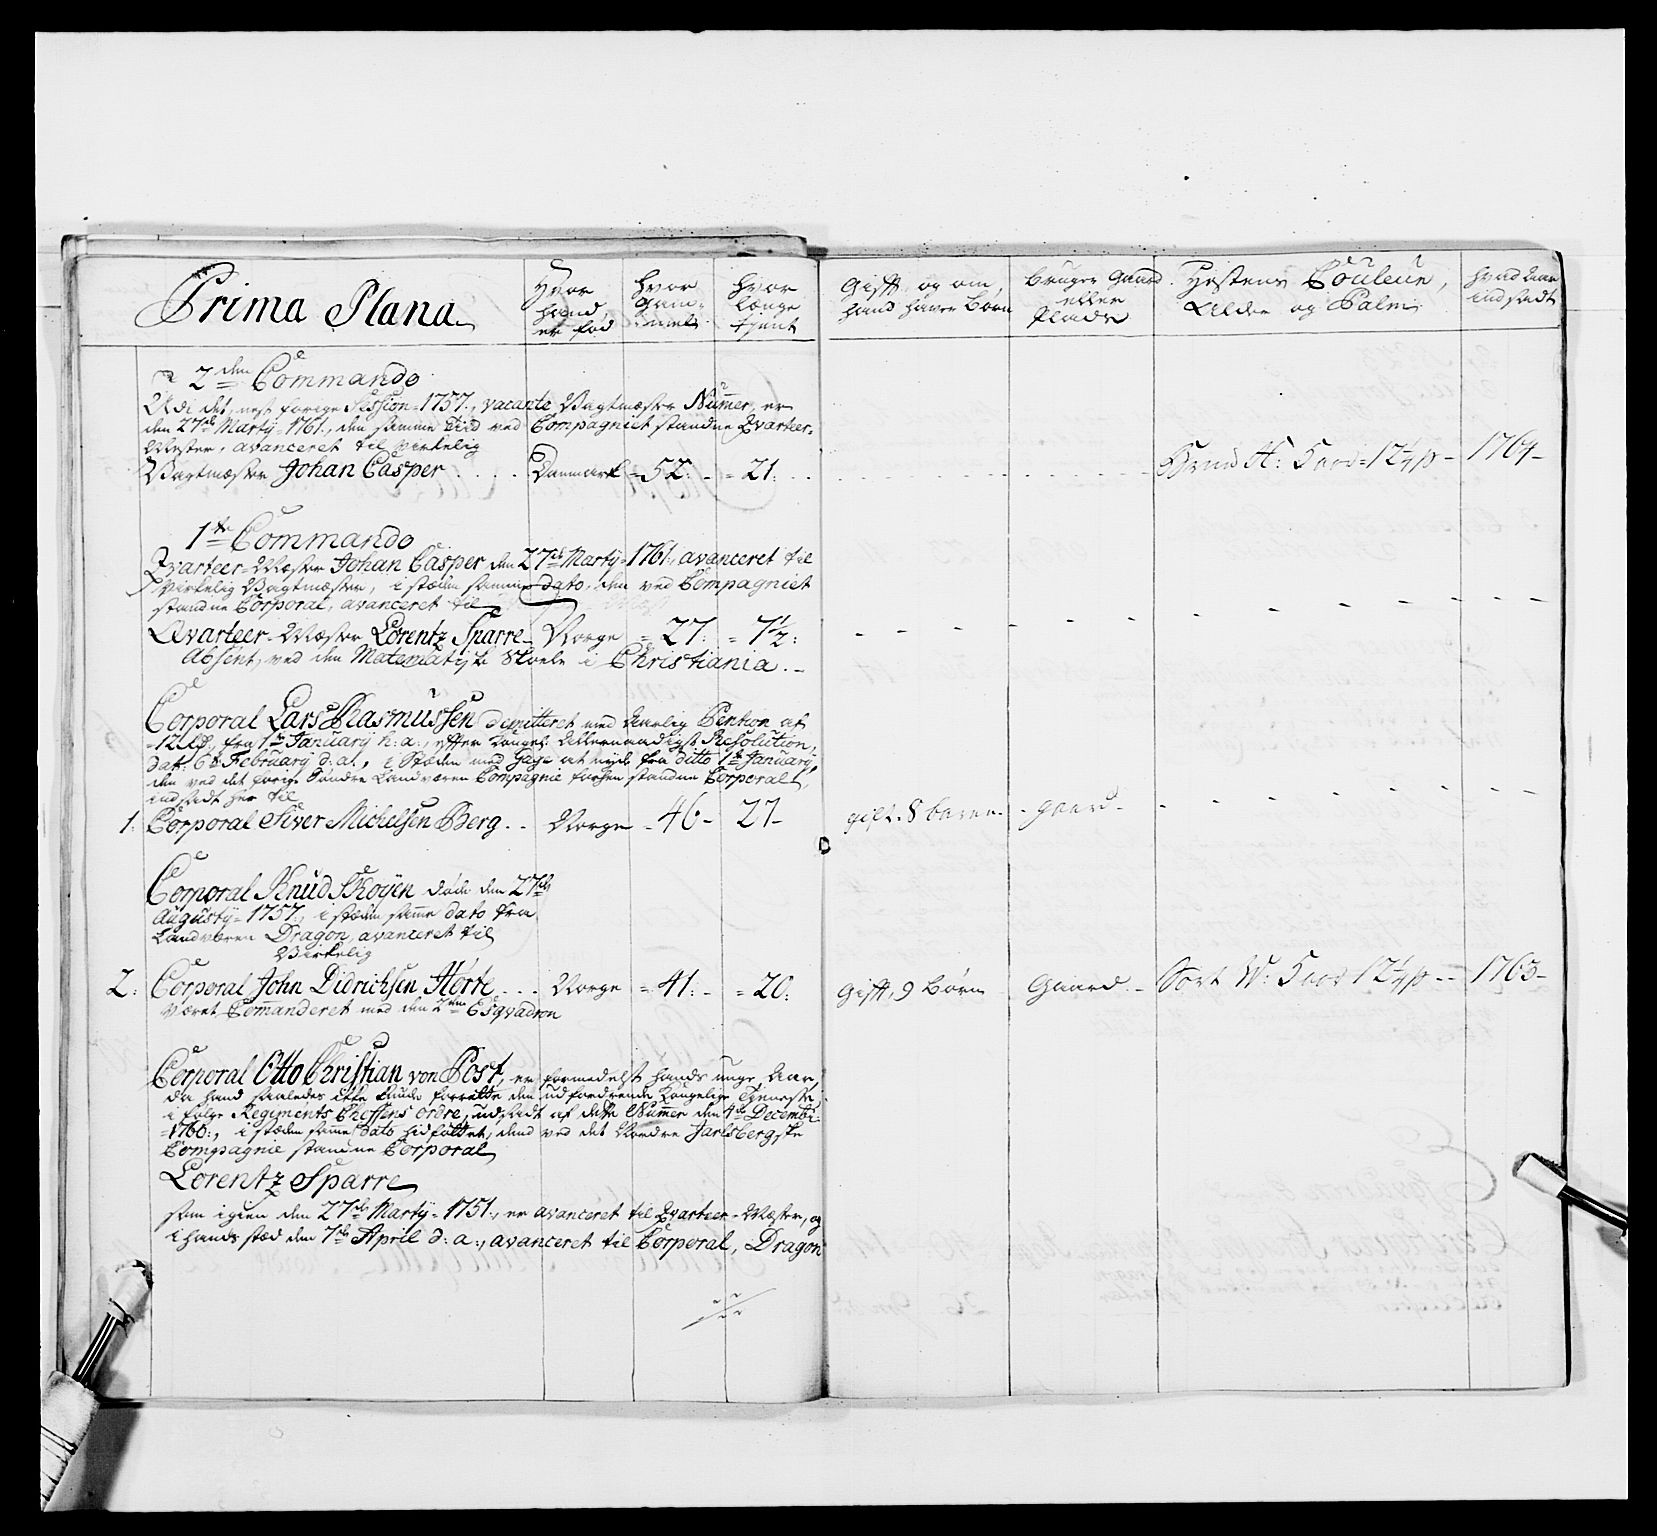 Prima Plana
Hvor hand er fød
hvor gammel
hvor længe tjent
Gift, og om hand haver Børn
bruger Gaard eller Plads
Hestens Couleur, Alder og Palm
hvad Aar indsadt
2den Commando
Udi det, nest forige Session 1757, vacante Vagtmæster Nummer, er
den 27de Martÿ 1761, den samme tid ved Compagniet standne Qvarteer-
Mester, avanceret til virkelig
Vagtmæster Johan Casper Danmark 52: 21: 12¼ p 1764
1te Commando
Qvarteer-Mæster Johan Casper den 27de Martÿ 1761, avanceret til
Virkelig Vagtmæster, i stæden samme dato, den ved Compagniet
standne Corporal, avanceret til
Qvarteer-Mæster Lorentz Sparre Norge 27: 7½:
Absent, ved den Matematiske Skole i Christiania.
Corporal Lars Rasmussen dimitteret med Aarlig Pention af
12 rd, fra 1te Januarÿ h: a:, efter Kongel: Allernaadigst Resolution,
dat: 6te Februarÿ d: a:, i Stæden med Gage at nyde fra ditto 1te Januarÿ,
den ved det forige Søndre Landværn Compagnie forhen standne Corporal,
indsadt her til
1: Corporal Siver Michelsen Berg Norge 46 27 gift. 8 børn gaard
Corporal Knud Skoÿen døde den 27de
Augustÿ 1757, i stæden samme dato fra
Landværn Dragon, avanceret til
Virkelig
2: Corporal John Didrichsen Horte Norge 41: 20: Gift, 9 Børn Gaard Sort W: 12¼ p 1763
Været Commanderet med den 2den Esqvadron
Corporal Otto Christian von Post, er formedelst hands unge Aar,
da hand saaledes icke kunde forrette den udfordrende Kongelige Tjeneste
i følge Regiments Cheffens Ordre, udsadt af dette Nummer den 4de Decembr:
1760, i stæden samme dato hidfløttet, dend ved det Nordre Jarlsbergske
Compagnie standne Corporal
Lorentz Sparre
som igien den 27de Martÿ 1751, er avanceret til Qvarteer-Mæster, og
i hands stæd den 7de April d: a:, avanceret til Corporal, Dragon